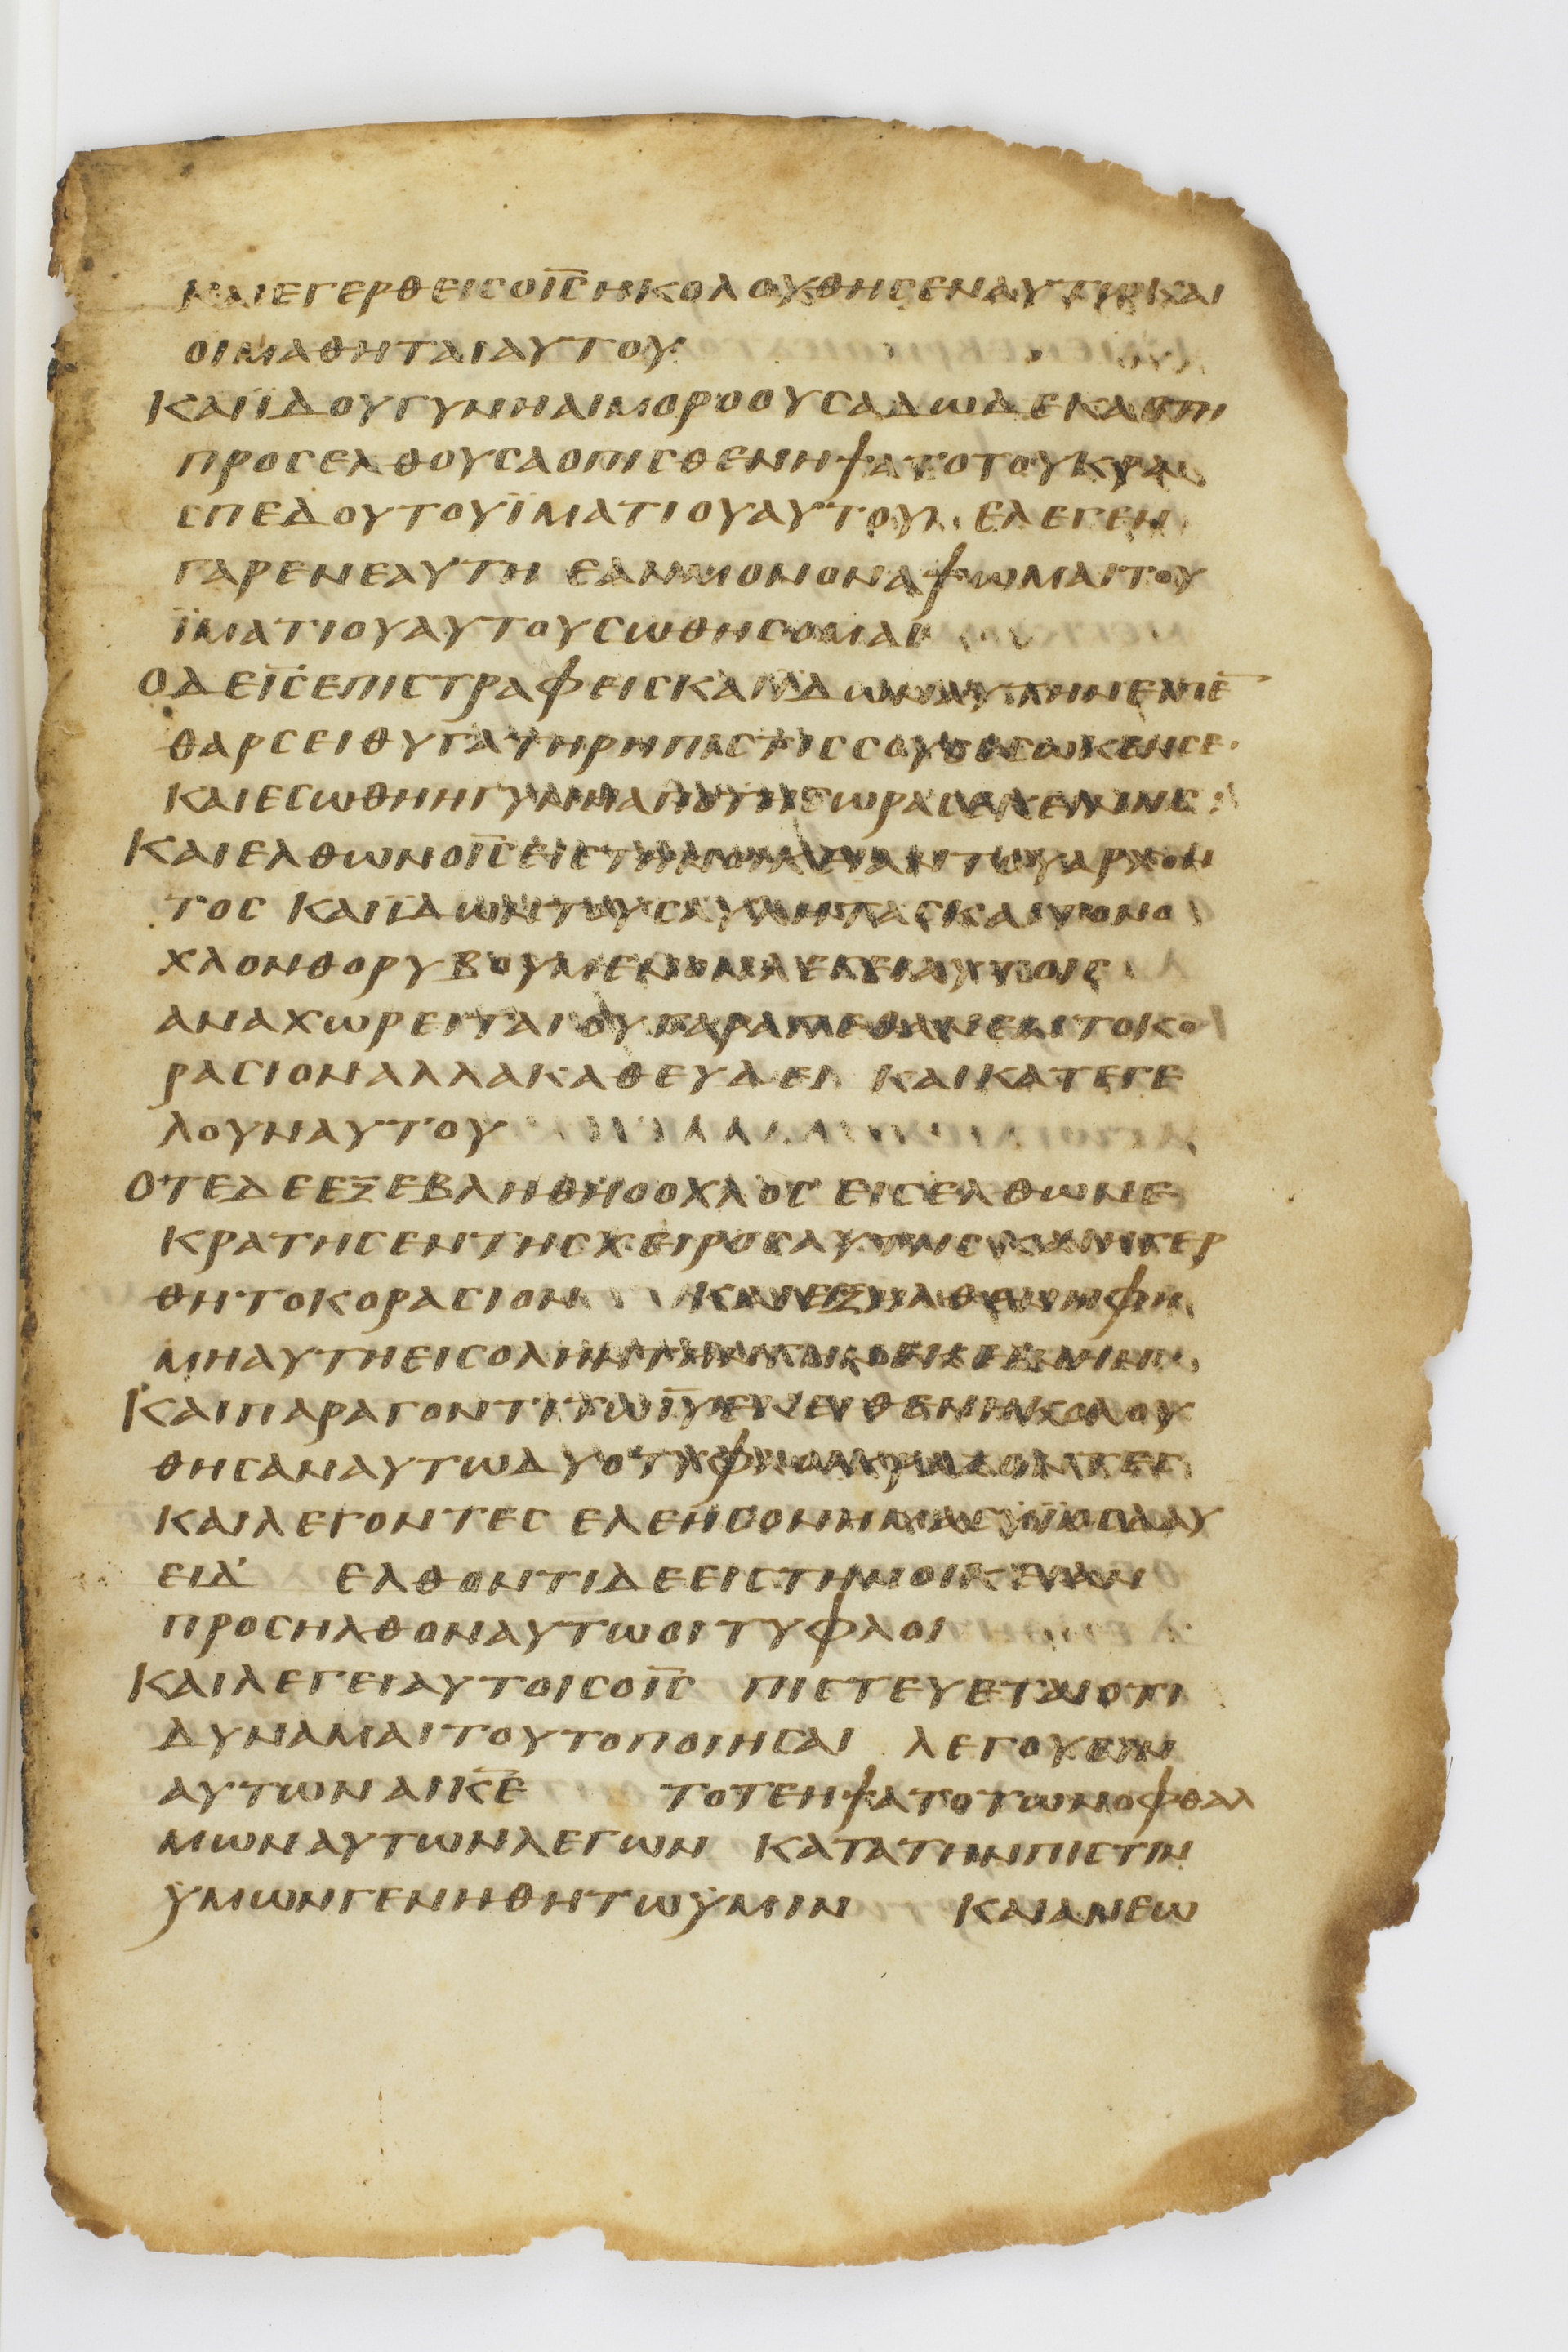 ΚΑΙΕΓΕΡΘΕΙΣΟΙ̅Σ̅ΗΚΟΛΟΥΘΗΣΕΝΑΥΤΩΚΑΙ
ΟΙΜΑΘΗΤΑΙΑΥΤΟΥ
ΚΑΙΪΔΟΥΓΥΝΗΑΙΜΟΡΟΟΥΣΑΔΩΔΕΚΑΕΤΗ
ΠΡΟΣΕΛΘΟΥΣΑΟΠΙΣΘΕΝΗΨΑΤΟΤΟΥΚΡΑ
ΣΠΕΔΟΥΤΟΥΪΜΑΤΙΟΥΑΥΤΟΥ ΕΛΕΓΕΝ
ΓΑΡΕΝΕΑΥΤΗ ΕΑΝΜΟΝΟΝΑΨΩΜΑΙΤΟΥ
ΪΜΑΤΙΟΥΑΥΤΟΥΣΩΘΗΣΟΜΑΙ
ΟΔΕΙ̅Σ̅ΕΠΙΣΤΡΑΦΕΙΣΚΑΙΪΔΩΝΑΥΤΗΝΕΙΠΕ̅
ΘΑΡΣΕΙΘΥΓΑΤΗΡΗΠΙΣΤΙΣΣΟΥΣΕΣΩΚΕΝΣΕ·
ΚΑΙΕΣΩΘΗΗΓΥΝΗΑΠΟΤΗΣΩΡΑΣΕΚΕΙΝΗΣ
ΚΑΙΕΛΘΩΝΟΙ̅Σ̅ΕΙΣΤΗΝΟΙΚΕΙΑΝΤΟΥΑΡΧΟΝ
ΤΟΣ ΚΑΙΪΔΩΝΤΟΥΣΑΥΛΗΤΑΣΚΑΙΤΟΝΟ
ΧΛΟΝΘΟΡΥΒΟΥΜΕΝΟΝΛΕΓΕΙΑΥΤΟΙΣ
ΑΝΑΧΩΡΕΙΤΑΙΟΥΓΑΡΑΠΕΘΑΝΕΝΤΟΚΟ
ΡΑΣΙΟΝΑΛΛΑΚΑΘΕΥΔΕΙ ΚΑΙΚΑΤΕΓΕ
ΛΟΥΝΑΥΤΟΥ
ΟΤΕΔΕΕΞΕΒΛΗΘΗΟΟΧΛΟΣ ΕΙΣΕΛΘΩΝΕ
ΚΡΑΤΗΣΕΝΤΗΣΧΕΙΡΟΣΑΥΤΗΣΚΑΙΗΓΕΡ
ΘΗΤΟΚΟΡΑΣΙΟΝ ΚΑΙΕΞΗΛΘΕΝΗΦΗ
ΜΗΑΥΤΗΕΙΣΟΛΗΝΤΗΝΓΗΝΕΚΕΙΝΗΝ
ΚΑΙΠΑΡΑΓΟΝΤΙΤΩΙ̅Υ̅ΕΚΕΙΘΕΝΗΚΟΛΟΥ
ΘΗΣΑΝΑΥΤΩΔΥΟΤΥΦΛΟΙΚΡΑΖΟΝΤΕΣ
ΚΑΙΛΕΓΟΝΤΕΣ ΕΛΕΗΣΟΝΗΜΑΣΫΪΟΣΔΑΥ
ΕΙΔ' ΕΛΘΟΝΤΙΔΕΕΙΣΤΗΝΟΙΚΕΙΑΝ
ΠΡΟΣΗΛΘΟΝΑΥΤΩΟΙΤΥΦΛΟΙ
ΚΑΙΛΕΓΕΙΑΥΤΟΙΣΟΙ̅Σ̅ ΠΙΣΤΕΥΕΤΑΙΟΤΙ
ΔΥΝΑΜΑΙΤΟΥΤΟΠΟΙΗΣΑΙ ΛΕΓΟΥΣΙΝ
ΑΥΤΩΝΑΙΚ̅Ε̅ ΤΟΤΕΗΨΑΤΟΤΩΝΟΦΘΑΛ
ΜΩΝΑΥΤΩΝΛΕΓΩΝ ΚΑΤΑΤΗΝΠΙΣΤΙΝ
ΫΜΩΝΓΕΝΗΘΗΤΩΫΜΙΝ ΚΑΙΑΝΕΩ